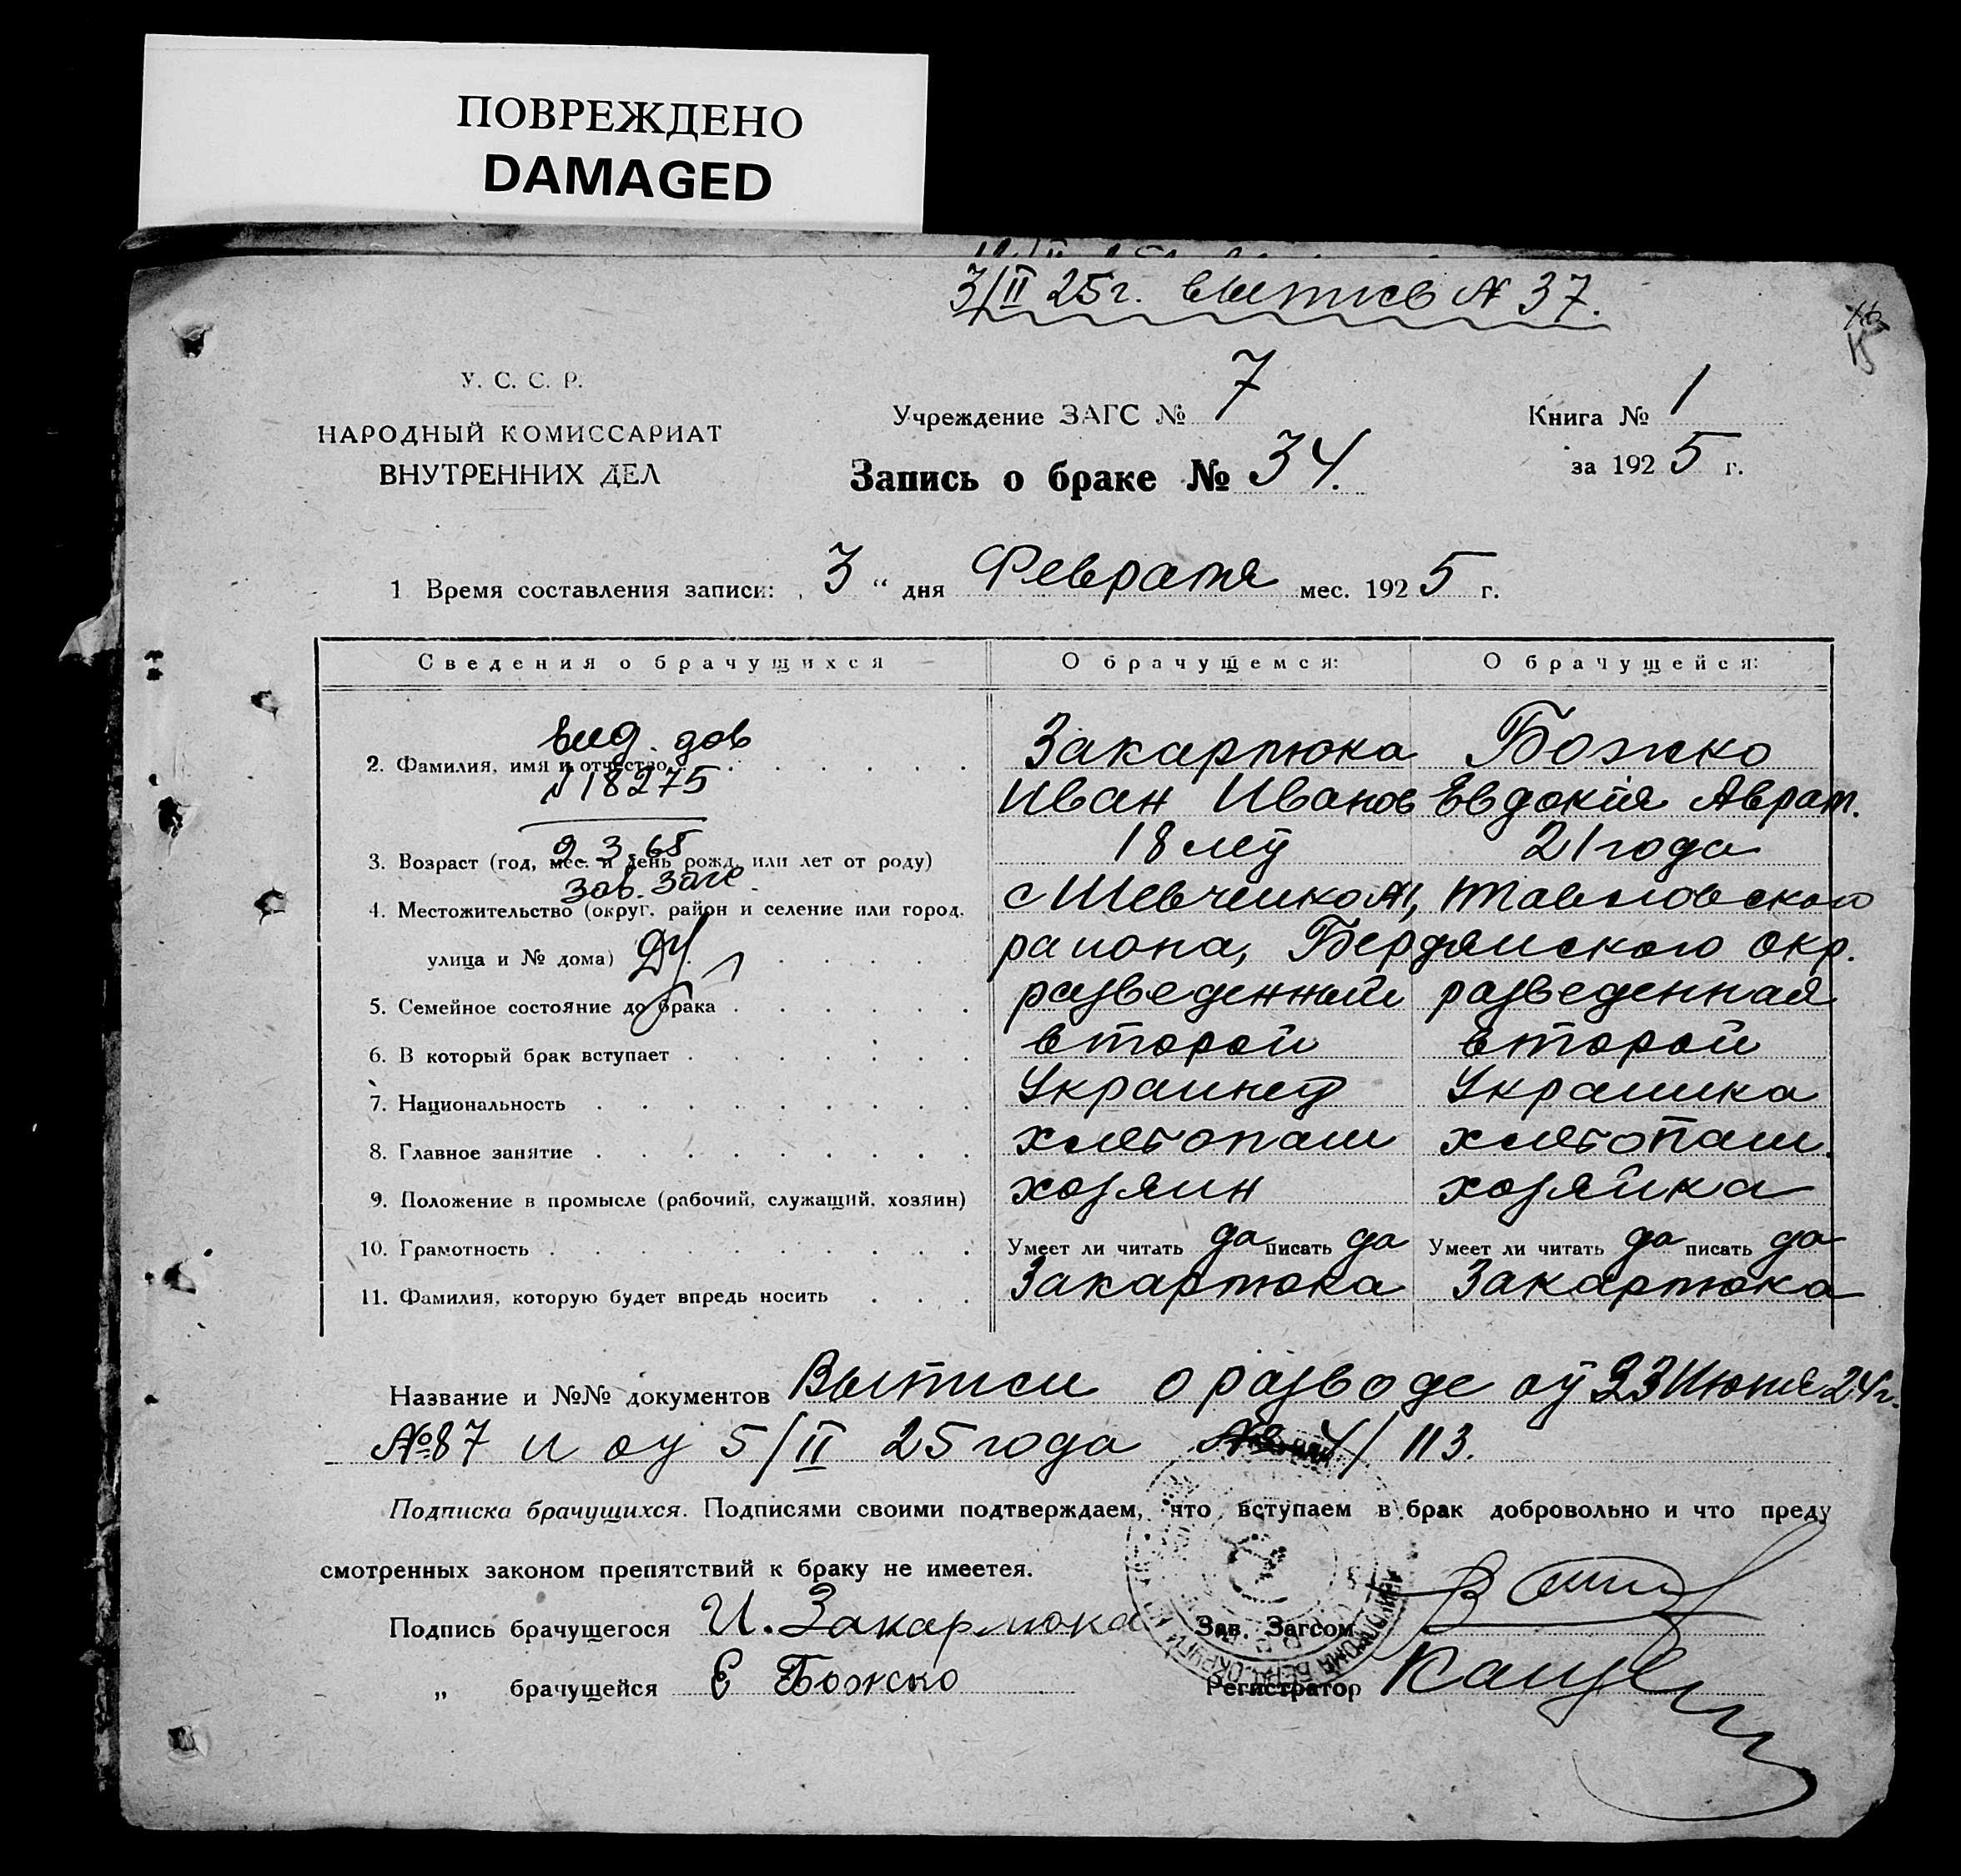 ПОВРЕЖДЕНО
DAMAGED
3/II 25г. выпись № 37.
У. С. С. Р.
НАРОДНЫЙ КОМИССАРИАТ
ВНУТРЕННИХ ДЕЛ
Учреждение ЗАГС № 7
Запись о браке № 34.
Книга № 1
за 1925 г.
1 Время составления записи: 3 " дня Февраля мес. 1925 г.
Сведения о брачущихся О брачущемся: О брачущейся:
вид. дов
2. Фамилия, имя и отчество Закарлюка Божко
№ 18275 Иван Иванов Евдокія Аврам.
9. 3. 65
3. Возраст (год, мес. и день рожд. или лет от роду) 18 лет 21 года
Зав. Загс
4. Местожительство (округ, район и селение или город, с Шевченко №1, Павловского
улица и № дома) района, Бердянского окр.
5. Семейное состояние до брака разведенный разведенная
6. В который брак вступает второй второй
7. Национальность Украинец Украинка
8. Главное занятие хлебопаш хлебопаш.
9. Положение в промысле (рабочий, служащий, хозяин) хозяин хозяйка
10. Грамотность Умеет ли читать да писать да Умеет ли читать да писать да
11. Фамилия, которую будет впредь носить Закарлюка Закарлюка
Название и №№ документов Выписи о разводе от 23 Июня 24г.
№ 87 и от 5/II 25 года / 113.
Подписка брачущихся. Подписями своими подтверждаем, что вступаем в брак добровольно и что преду
смотренных законом препятствий к браку не имеется.
Подпись брачущегося И. Закарлюка Зав. Загсом
„ брачущейся Е Божко Регистратор